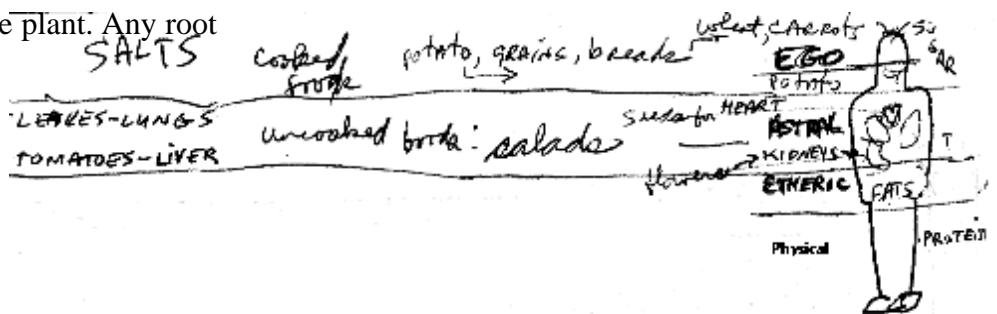 e plant. Any root
SALTS cooked foods potato, grains, breads wheat, CARROTS
EGO
potato
LEAVES-LUNGS uncooked foods: salads seeds for HEART ASTRAL
TOMATOES-LIVER flowers KIDNEYS T
ETHERIC FATS
Physical PROTEIN